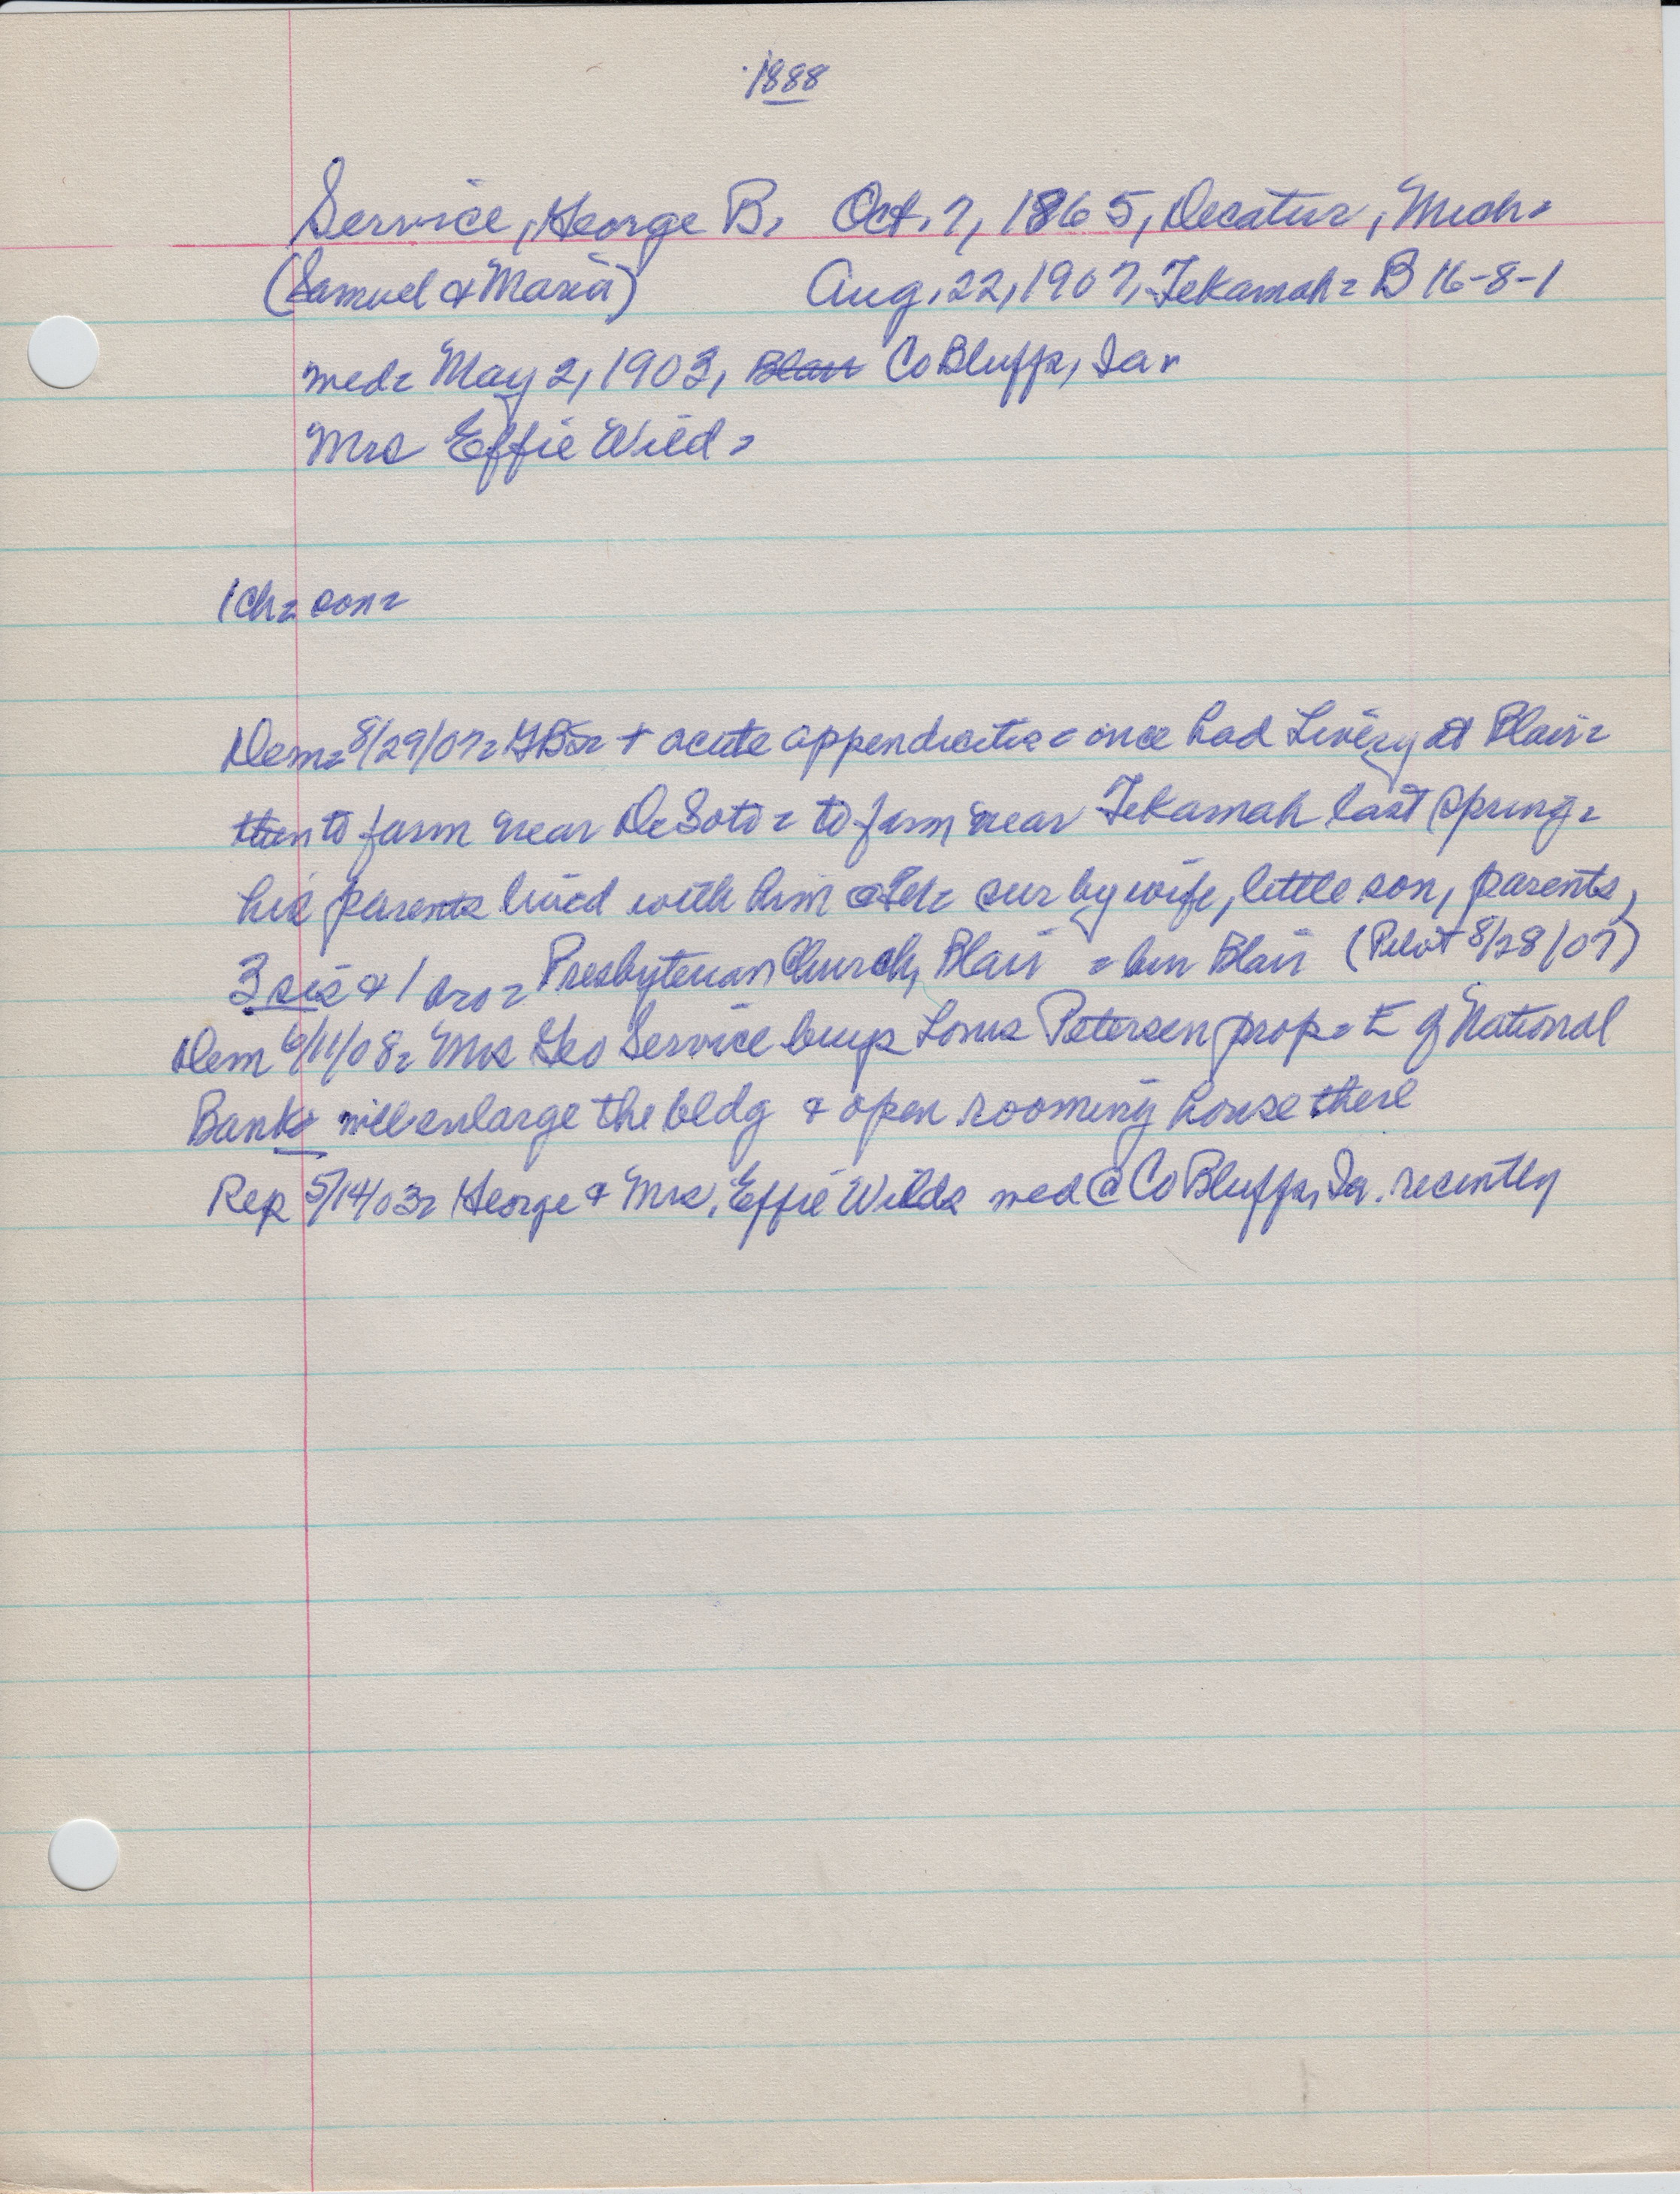 1888
Service, George B. Oct. 7, 1865, Decatur, Mich=
(Samuel & Maria) Aug. 22, 1907, Tekamah= B 16-8-1
med= May 2, 1903, Blair Co Bluffs, Ia=
Mrs Effie Wild=
1 ch= son=
Dem= 8/29/07= + acute appendicitis= once had Livery at Blair=
then to farm near DeSoto= to farm near Tekamah last spring=
his parents lived with him sur by wife, little son, parents,
3 sis & 1 bro= Presbyterian Church, Blair = bur Blair (Pilot 8/28/07)
Dem 6/11/08= Mrs Geo Service buys Louis Petersen prop= E of National
Bank= will enlarge the bldg & open rooming house there
Rep 5/14/03= George & Mrs. Effie Wilds med @ Co Bluffs, Ia. recently